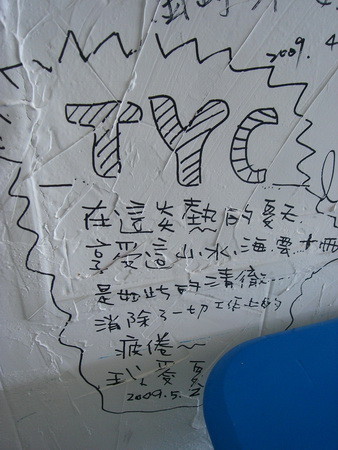 2009. 4
TYC
在這炎熱的夏天
享受這山、水、海、雲、
是如此的清徹…
消除了一切工作上的
疲倦～
我愛夏
2009.5.2